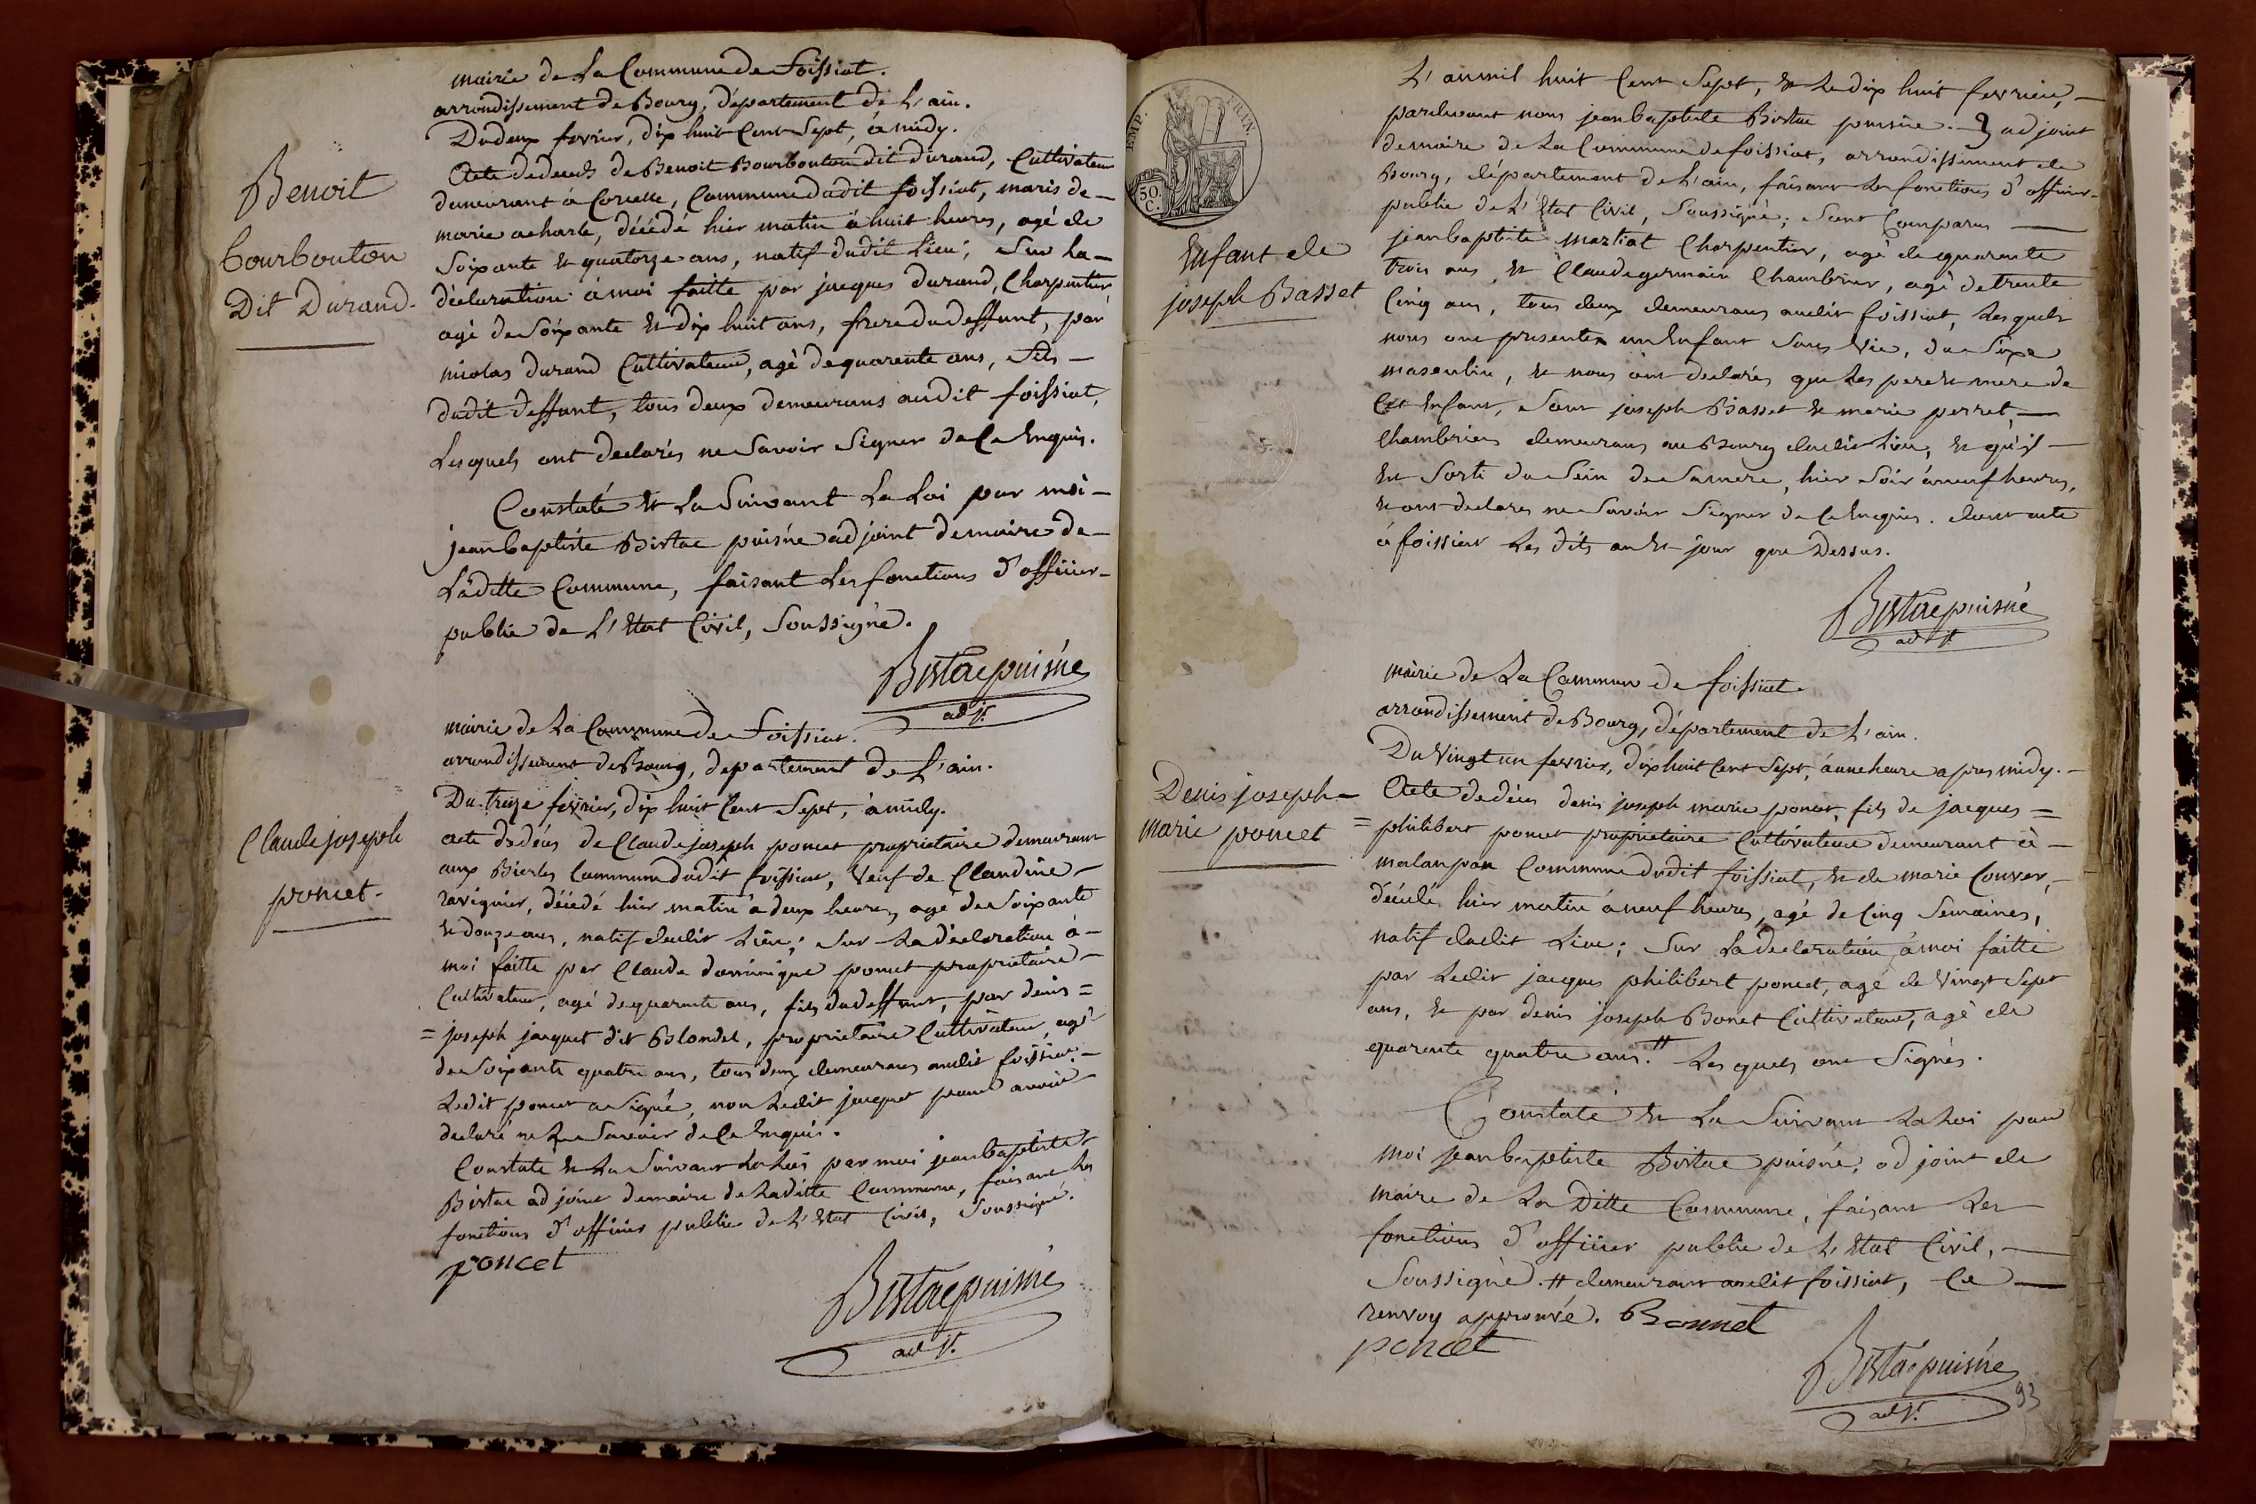 mairie de La Commune de Foissiat.
arrondissement de Bourg, département de L'ain.
Du deux fevrier, dix huit Cent Sept, à midy.
Acte de deces de Benoit Bourbouton dit durand, Cultivateur
Benoit
bourbouton
Dit Durand.
demeurant à Cormelle, Commune dudit foissiat, maris de
marie acharle, décédé hier matin à huit heures, agé de
Soixante et quatorze ans, natif dudit lieu; Sur La
déclaration à moi faitte par jacques durand, Charpentier
agé de Soixante et dix huit ans, frere du deffunt, par
nicolas durand Cultivateur, agé de quarente ans, fils
dudit deffunt, tous deux demeurans audit foissiat,
Lesquels ont declarés ne Savoir Signer de Ce Enquis.
Constaté et La Suivant La Loi par moi
jean baptiste Bistac puisné adjoint de maire de
Laditte Commune, faisant Les fonctions d'officier
public de L'Etat Civil, Soussigné.
Bistac puisné
adjt.
mairie de La Commune de Foissiat.
arrondissement de Bourg, departement de L'ain.
Du treize fevrier, dix huit Cent Sept, à midy.
Claude joseph
poncet.
acte de déces de Claude joseph poncet proprietaire demeurant
aux Bierles Commune dudit foissiat, Veuf de Claudine
ravignier, décédé hier matin à deux heures, agé de Soixante
et douze ans, natif dudit Lieu; Sur La déclaration à
moi faitte par Claude dominique poncet proprietaire
Cultivateur, agé de quarente ans, fils du deffunt, par denis =
= joseph jacquet dit Blondel, proprietaire Cultivateur, agé
de Soixante quatre ans, tous deux demeurans audit foissiat.
Ledit poncet a Signé, non Ledit jacquet pour avoir
declaré ne Le Savoir de Ce Enquis.
Constaté et La Suivant La Loi par moi jean baptiste
Bistac adjoint de maire de Laditte Commune, faisant Les
fonctions d'officier public de L'Etat Civil, Soussigné.
poncet
Bistac puisné
adjt.
EMP. FRAN.
50.
C.
L'an mil huit Cent Sept, et Le dix huit fevrier,
pardevant nous jean baptiste Bistac puisné adjoint
de maire de La Commune de foissiat, arrondissement de
Bourg, département de L'ain, faisant Les fonctions d'officier
public de L'Etat Civil, Soussigné; Sont Comparus
Enfant de
joseph Basset
jean baptiste martiat Charpentier, agé de quarente
trois ans, et Claude germain Chambrier, agé de trente
Cinq ans, tous deux demeurans audit foissiat, Lesquels
nous ont presenté un Enfant Sans Vie, du Sexe
masculin, et nous ont declarés que Les pere et mere de
Cet Enfant, Sont joseph Basset et marie perret
Chambrier demeurans au Bourg dudit Lieu, et qu'il
Est Sorti du Sein de Sa mere, hier Soir à neuf heures,
et ont declarés ne Savoir Signer de Ce Enquis. dont acte
à foissiat Les dits an et jour que Dessus.
Bistac puisné
adjt.
mairie de La Commune de foissiat.
arrondissement de Bourg, département de L'ain.
Du Vingt un fevrier, dix huit Cent Sept, à une heure apres midy.
Denis joseph
marie poncet
Acte de déces denis joseph marie poncet, fils de jacques =
= philibert poncet proprietaire Cultivateur demeurant à
malanpan Commune dudit foissiat, et de marie Couver,
décédé hier matin à neuf heures, agé de Cinq Semaines,
natif dudit Lieu; Sur La declaration à moi faitte
par Ledit jacques philibert poncet, agé de Vingt Sept
ans, et par denis joseph Bonet Cultivateur, agé de
quarente quatre ans. # Lesquels ont Signés.
Constaté et La Suivant La Loi par
moi jean baptiste Bistac puisné, adjoint de
maire de La Ditte Commune, faisant Les
fonctions d'officier public de L'Etat Civil,
Soussigné. # demeurant audit foissiat, Ce
renvoy approuvé. Bonnet
poncet
Bistac puisné
adjt.
93